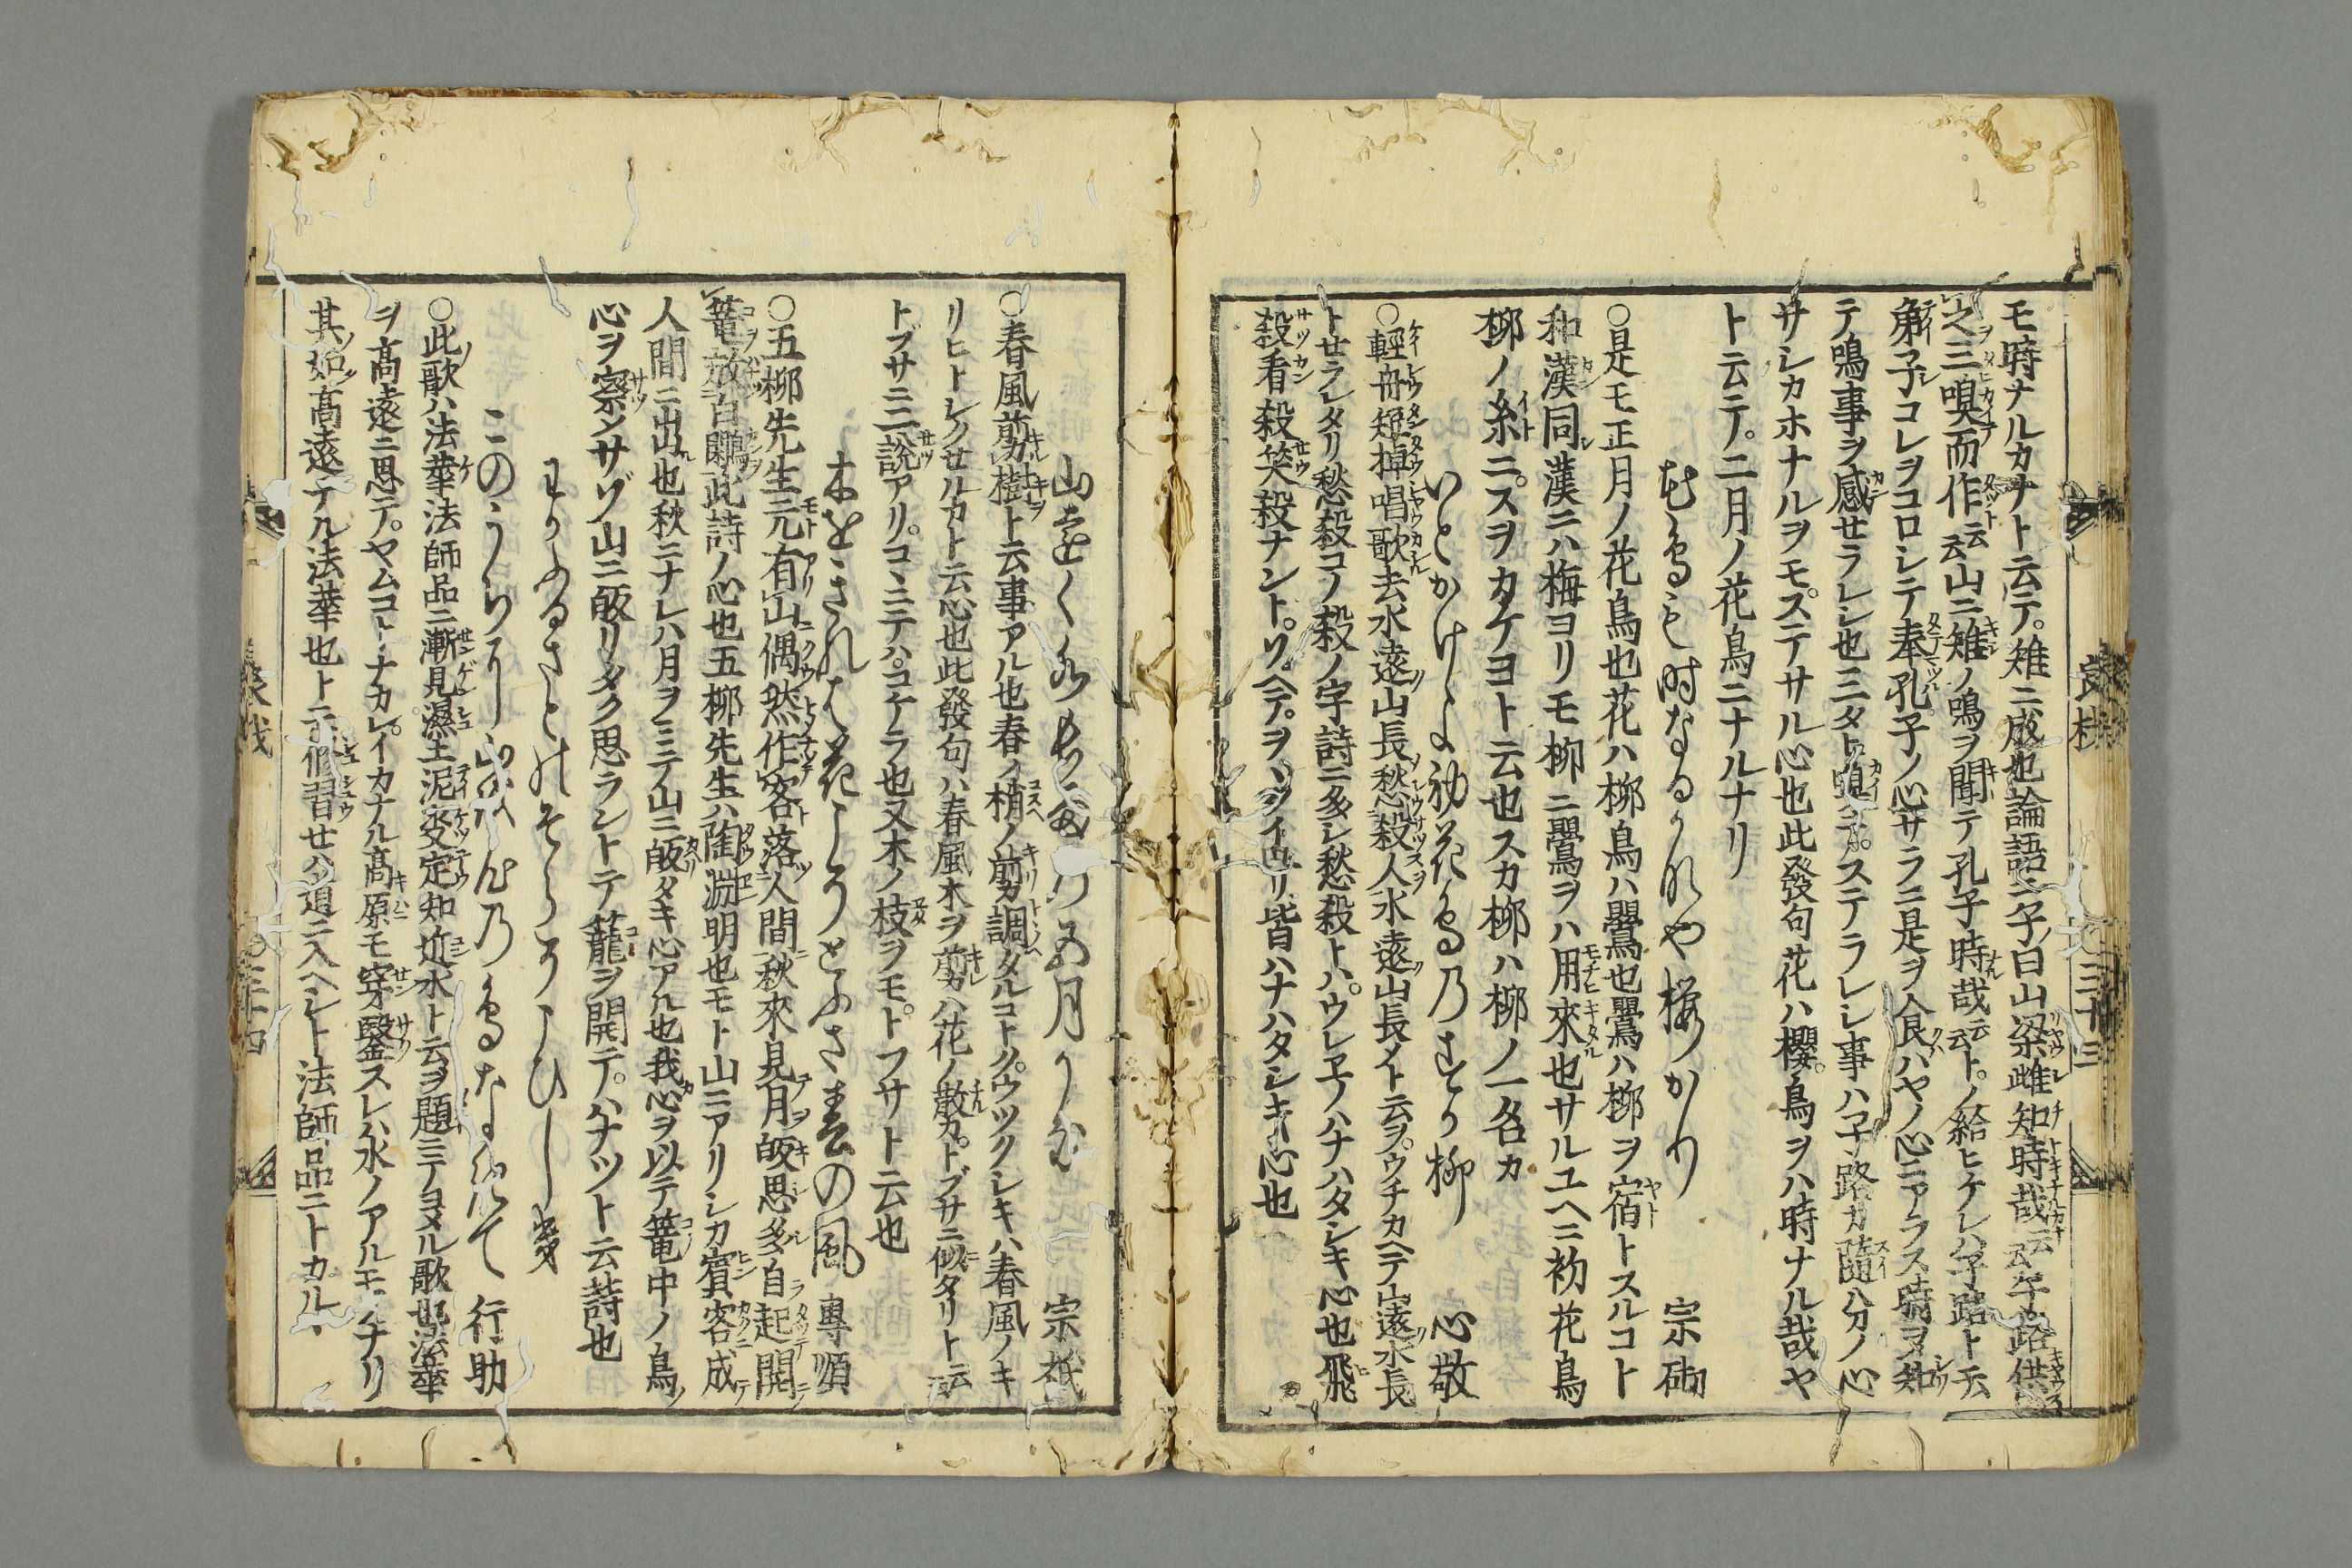 モ時ナルカナト云テ雉ニ成也論語ニ子曰山梁雌知時哉云云子路供
之三嗅而作云云山ニ雉ノ鳴ヲ聞テ孔子時哉云云トノ給ヒケレハ子路ト云
弟子コレヲコロシテ奉孔子ノ心サラニ是ヲ食ハヤノ心ニアラス時ヲ知
テ鳴事ヲ感セラレシ也三タト嗅テステラレシ事ハ子路カ随分ノ心
サシカホナルヲモステサル心也此發句花ハ櫻鳥ヲハ時ナル哉ヤ
ト云テ二月ノ花鳥ニナルナリ
花鳥も時なるかなや櫻かり 宗砌
○是モ正月ノ花鳥也花ハ柳鳥ハ鸎也鸎ハ柳ヲ宿トスルコト
和漢同シ漢ニハ梅ヨリモ柳ニ鸎ヲハ用來也サルユヘニ初花鳥
柳ノ糸ニスヲカケヨト云也スカ柳ハ柳ノ一名カ
いとかけよ初花鳥のすか柳 心敬
○輕舟短棹唱歌去水遠山長愁殺人水遠山長メト云ヲウチカヘテ山遠水長
トセラレタリ愁殺コノ殺ノ字詩ニ多シ愁殺トハウレエノハナハタシキ心也飛
殺看殺笑殺ナントソヘテヲヽシイヨリ皆ハナハタシキ心也
山遠く水もなかめの五月かな 宗祇
○春風剪樹ト云事アル也春ノ梢ノ剪調タルコトクウツクシキハ春風ノキ
リヒトシクセルカト云心也此發句ハ春風木ヲ剪ハ花ノ散カトブサニ似タリト云云
トブサニ二說アリコヽニテハコケラ也又木ノ枝ヲモトフサト云也
木をきれは花こそとふさ春の風 專順
○五柳先生元有山偶然作客落人間秋來見月皈思多自起開
篭放白鷴此詩ノ心也五柳先生ハ陶渊明也モト山ニアリシカ賓客成テ
人間ニ出也秋ニナレハ月ヲミテ山ニ皈タキ心アル也我心ヲ以テ篭中ノ鳥ノ
心ヲ察シサゾ山ニ皈リタク思ラントテ籠ヲ開テハナツト云詩也
わかふるさとのそらそこひしき
このうちにかへは心の鳥なれて 行助
○此歌ハ法華法師品ニ漸見濕土泥决定知近水ト云ヲ題ニテヨメル歌也法華
ヲ高遠ニ思テヤムコトナカレイカナル高原モ穿鑿スレハ水ノアルモノナリ
其如高遠ナル法華也ト云修習セハ道ニ入ヘシト法師品ニトカル